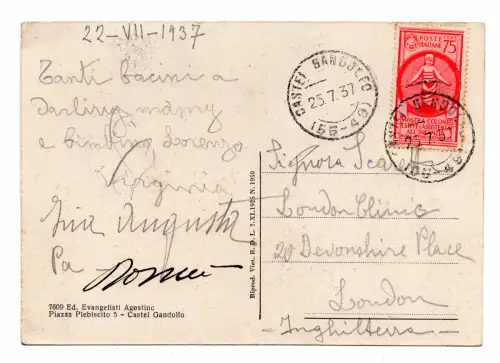 22-VII-1937
Tanti bacini a
Darling mamy
e bimbino Lorenzo.
Virginia
Zia Augusta
Pa
7609 Ed. Evangelisti Agostino
Piazza Plebiscito 5 - Castel Gandolfo
Riprod. Viet. R. D. L. 7.XI.1925 N. 1950
CASTEL GANDOLFO
25.7.37
(55-49)
POSTE ITALIANE
75
MOSTRA COLONIE
25.7.37
Signora
London Clinic
20 Devonshire Place
London
-Inghilterra-